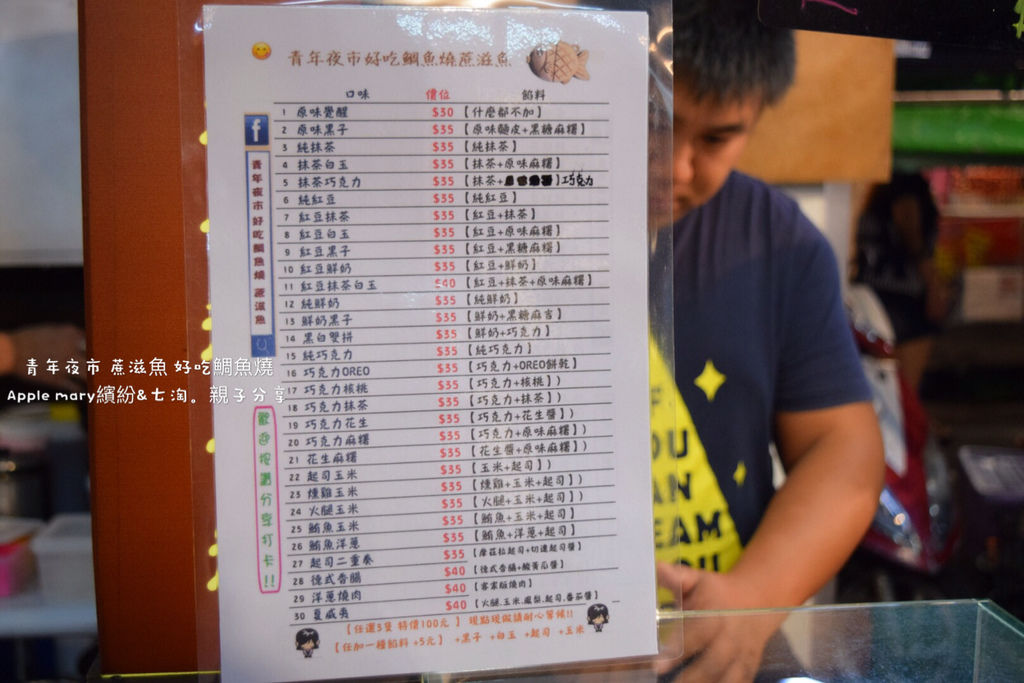 青年夜市好吃鯛魚燒蔗滋魚
口味 價位 餡料
1 原味覺醒 $30 【什麼都不加】
2 原味黑子 $35 【原味麵皮+黑糖麻糬】
3 純抹茶 $35 【純抹茶】
4 抹茶白玉 $35 【抹茶+原味麻糬】
5 抹茶巧克力 $35 【抹茶+】巧克力
6 純紅豆 $35 【純紅豆】
7 紅豆抹茶 $35 【紅豆+抹茶】
8 紅豆白玉 $35 【紅豆+原味麻糬】
9 紅豆黑子 $35 【紅豆+黑糖麻糬】
10 紅豆鮮奶 $35 【紅豆+鮮奶】
11 紅豆抹茶白玉 $40 【紅豆+抹茶+原味麻糬】
12 純鮮奶 $35 【純鮮奶】
13 鮮奶黑子 $35 【鮮奶+黑糖麻吉】
14 黑白雙拼 $35 【鮮奶+巧克力】
15 純巧克力 $35 【純巧克力】
16 巧克力OREO $35 【巧克力+OREO餅乾】
17 巧克力核桃 $35 【巧克力+核桃】)
18 巧克力抹茶 $35 【巧克力+抹茶】)
19 巧克力花生 $35 【巧克力+花生醬】)
20 巧克力麻糬 $35 【巧克力+原味麻糬】)
21 花生麻糬 $35 【花生醬+原味麻糬】)
22 起司玉米 $35 【玉米+起司】)
23 燻雞玉米 $35 【燻雞+玉米+起司】)
24 火腿玉米 $35 【火腿+玉米+起司】)
25 鮪魚玉米 $35 【鮪魚+玉米+起司】
26 鮪魚洋蔥 $35 【鮪魚+洋蔥+起司】
27 起司二重奏 $35 【摩菈拉起司+切達起司醬】
28 德式香腸 $40 【德式香腸+酸黃瓜醬】
29 洋蔥燒肉 $40 【客家版燒肉】
30 夏威夷 $40 【火腿.玉米.鳳梨.起司.番茄醬】
【任選3隻 特價100元】 現點現做請耐心等候!!
【任加一種餡料 +5元】 +黑子 +白玉 +起司 +玉米
f
青年夜市好吃鯛魚燒 蔗滋魚
歡迎按讚分享打卡!!
青年夜市 蔗滋魚 好吃鯛魚燒
Apple mary繽紛&七淘。親子分享